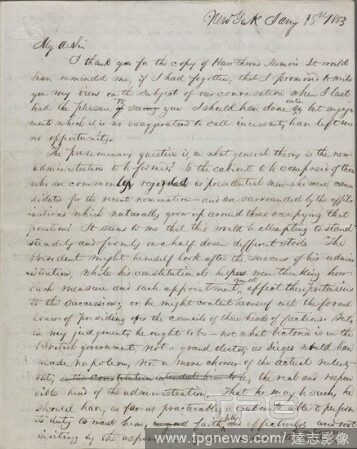 New York Jany 15th 1853
My d Sir
I thank you for the copy of Hawthorne's Memoir. It would
have reminded me, if I had forgotten, that I promised to write
you my views on the subject of our conversation when I last
had the pleasure to see you. I should have done so but engage-
ments which it is no exaggeration to call incessant, have left me
no opportunity.
The preliminary question is, on what general theory is the new
administration to be formed? Is the cabinet to be composed of those
who are commonly regarded as presidential men - who were can-
didates for the recent nomination - and are surrounded by the affil-
iations which naturally grow up around those occupying that
position? It seems to me that this would be attempting to stand
steadily and firmly on a half dozen different stools. The
President might himself look after the success of his admin-
istration, while his constitutional helpers were thinking how
each measure and each appointment would affect their pretensions
to the succession; or he might content himself with the formal
honor of presiding over the councils of these heads of factions. But
in my judgment, he ought to be - not what Victoria is in the
British government, not a grand elector, as Sieyes would have
made Napoleon, not a mere chooser of the actual
the real and respon-
sible head of the administration. That he may be such, he
should have, as far as practicable, a cabinet
its duty to assist him, faithfully and effectively, and not
www.tpgnews.com/達志影像